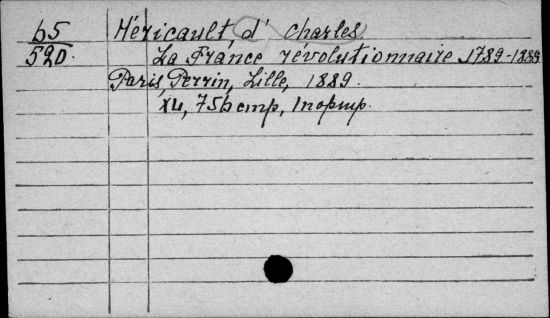 65 Héricault, d' Charles
520. La France révolutionnaire 1789-1889
Paris, Perrin, Lille, 1889.
XII, 756 cmp, 1